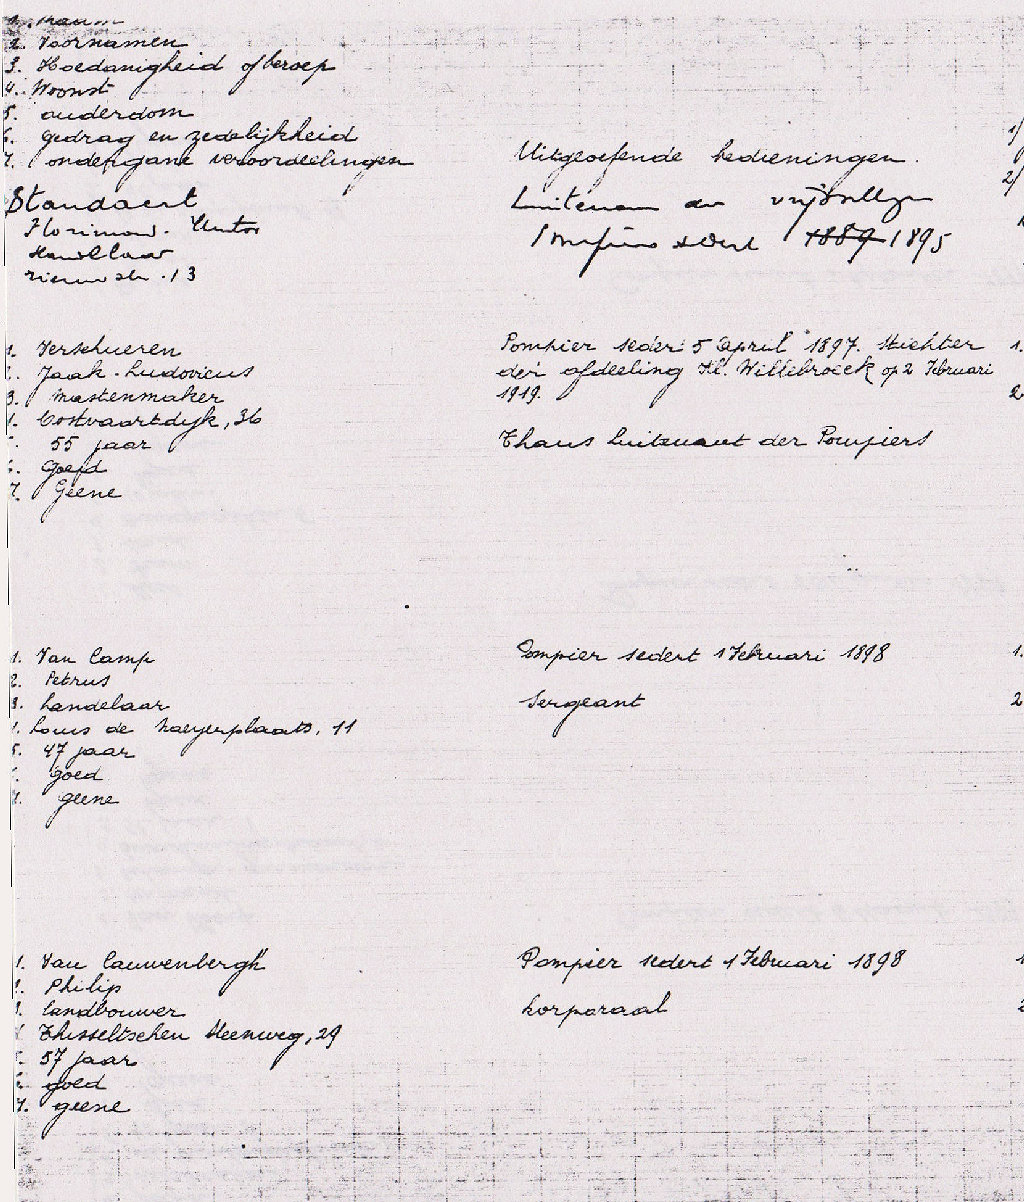 1. Naam
2. Voornamen
3. Hoedanigheid of beroep
4. Woonst
5. ouderdom
6. gedrag en zedelijkheid
7. ondergane veroordeelingen
Uitgeoefende bedieningen.
1/
2/
Standaert
Florimond. Victor
Handelaar
nieuwstr. 13
Luitenan der vrijwillige
Pompiers sedert 1889 1895
1. Verschueren
2. Jaak - Ludovicus
3. mastenmaker
4. Oostvaartdijk, 36
5. 55 jaar
6. Goed
7. Geene
Pompier seder 5 april 1897. Stichter
der afdeeling Kl. Willebroeck op 2 Februari
1919.
Thans Luitenant der Pompiers
1.
2
1. Van Camp
2. Petrus
3. handelaar
4. Louis de Naeyerplaats, 11
5. 47 jaar
6. goed
7. geene
Pompier sedert 1 Februari 1898
Sergeant
1.
2
1. Van Cauwenbergh
2. Philip
3. landbouwer
4. Thisseltschen Steenweg, 29
5. 57 jaar
6. goed
7. geene
Pompier sedert 1 Februari 1898
korporaal